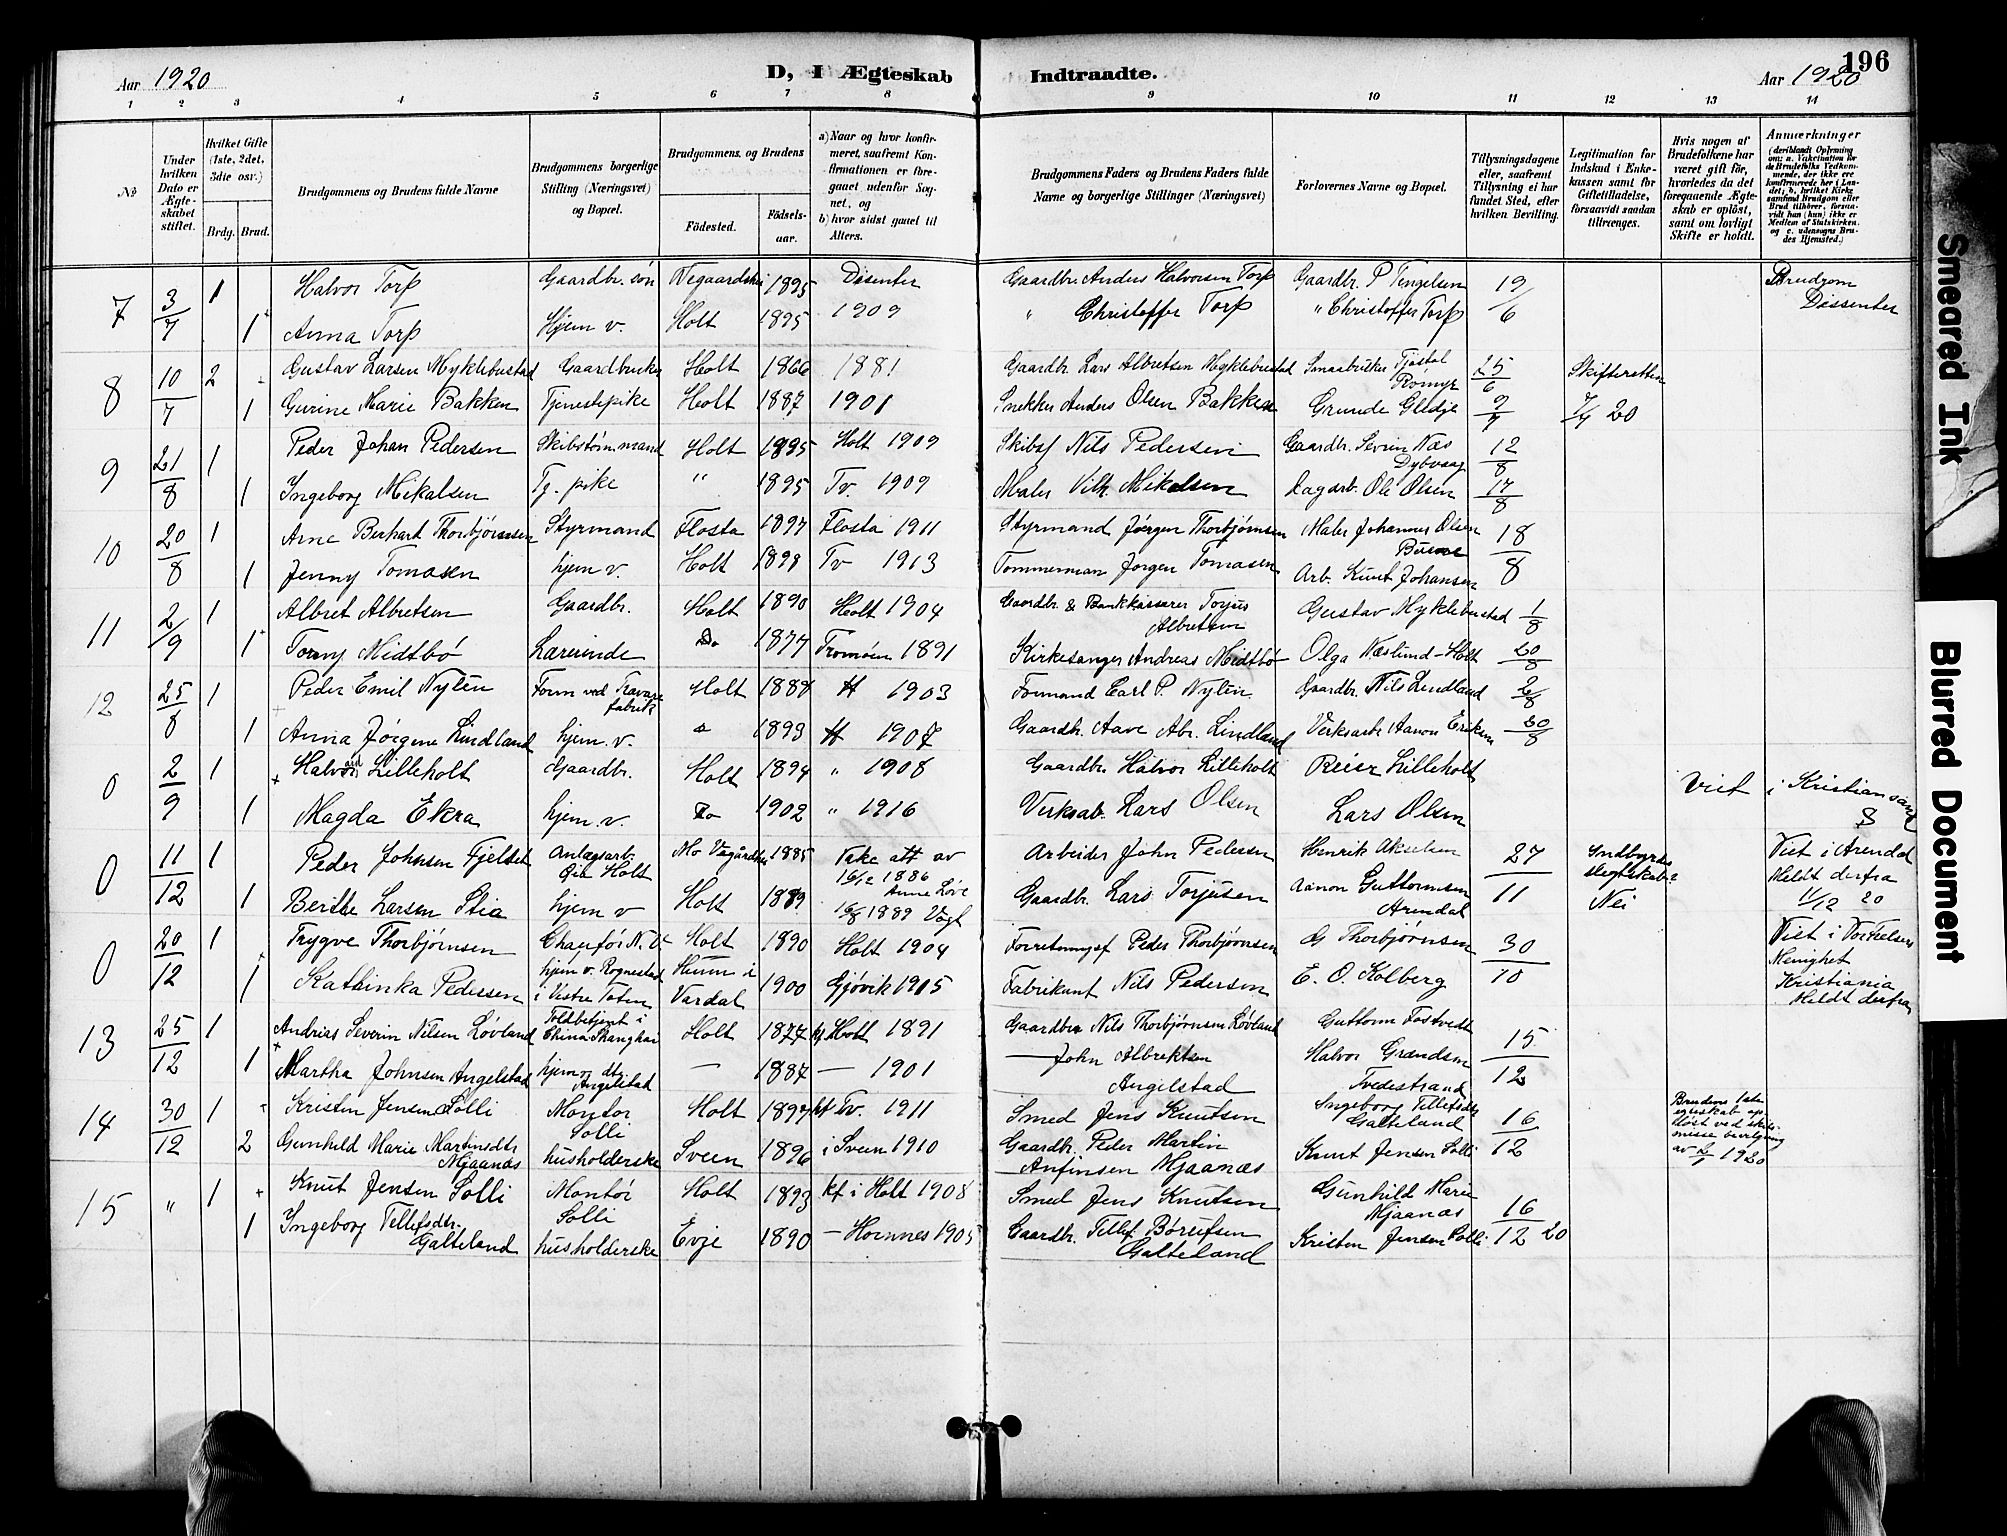 196
Aar 1920
D, I Ægteskab Indtraadte.
Aar 1920
1 2 3 4 5 6 7 8 9 10 11 12 13 14
No
Under hvilken Dato er Ægteskabet stiftet.
Hvilket Gifte (1ste, 2det, 3die osv.)
Brdg. Brud.
Brudgommens og Brudens fulde Navne
Brudgommens borgerlige Stilling (Næringsvei) og Bopæl.
Brudgommens og Brudens
Fødested.
Fødselsaar.
a) Naar og hvor konfirmeret, saafremt Konfirmationen er foregaaet udenfor Sognet, og
b) hvor sidst gaaet til Alters.
Brudgommens Faders og Brudens Faders fulde Navne og borgerlige Stillinger (Næringsvei)
Forlovernes Navne og Bopæl.
Tillysningsdagene eller, saafremt Tillysning ei har fundet Sted, efter hvilken Bevilling.
Legitimation for Indskud i Enkekassen samt for Giftetilladelse, forsaavidt saadan tiltrænges.
Hvis nogen af Brudefolkene har været gift før, hvorledes da det foregaaende Ægteskab er opløst, samt om lovligt Skifte er holdt.
Anmærkninger (deriblandt Oplysning om: a. Vakcination for de Brudefolks Vedkommende, der ikke ere konfirmerede her i Landet; b. hvilket Kirkesamfund Brudgom eller Brud tilhører, forsaavidt han (hun) ikke er Medlem af Statskirken. og c. udensogns Brudes Hjemsted.)
7 3/7 1 Halvor Torp Gaardbr. søn Vegaardshei 1895 Disenter Gaardbr. Anders Halvorsen Torp Gaardbr. P Tengelsen 19/6 Brudgom Dissenter
1 Anna Torp Hjem v. Holt 1895 1909 " Christoffer Torp " Christoffer Torp
8 10/7 2 Gustav Larsen Myklebustad Gaardbruker Holt 1866 1881 Gaardbr. Lars Albretsen Myklebustad Smaabruker Tjostol Rømyr 25/6 Skifteretten
1 Gurine Marie Bakken Tjenestepike Holt 1887 1901 Snekker Anders Olsen Bakken Grunde Glidje 20
9 21/8 1 Peder Johan Pedersen Skibstømmand Holt 1895 Holt 1909 Skibsf Nils Pedersen Gaardbr. Sevrin Næs Dybvaag 12/8
1 Ingeborg Mikalsen Tj. pike " 1895 Tv. 1909 Maler Vilh. Mikalsen Dagarb. Ole Olsen 17/8
10 20/8 1 Arne Berhart Thorbjørnsen Styrmand Flosta 1897 Flosta 1911 Styrmand Jørgen Thorbjørnsen Maler Johannes Olsen 18/8
1 Jenny Tomasen hjem v. Holt 1898 Tv 1913 Tømmerman Jørgen Tomasen Arb. Knut Johansen
11 2/9 1 Albret Albretsen Gaardbr. Holt 1890 Holt 1904 Gaardbr. & Bankkasserer Torjus Albretsen Gustav Myklebustad 1/8
1 Torny Midtbø Lærerinde Do 1877 Tromøen 1891 Kirkesanger Andreas Midtbø Olga Næslund - Holt 20/8
12 25/8 1 Peder Emil Nylen Form ved Travarefabrik Holt 1888 H 1903 Formand Carl P. Nylin Gaardbr. Nils Lindland 2/8
1 Anna Jørgine Lindland hjem. v. 1893 H 1907 Gaardbr. Aave Abr. Lindland Verksarb. Aanon Eriksen 30/8
0 2/9 1 Halvor Lilleholt Gaardbr. Holt 1894 " 1908 Gaardbr. Halvor Lilleholt Reier Lilleholt Viet i Kristiansand S
1 Magda Ekra hjem. v. Do 1902 " 1916 Verksab. Lars Olsen Lars Olsen
0 11/12 1 Peder Johnsen Fjelset Anlægsarb. Holt Mo Vegårdshei 1885 Vake att av 16/12 1886 Arbeider John Pedersen Henrik Akselsen 27/11 Indbyrdes slegtskab? Viet i Arendal Meldt derfra 11/12 20
1 Berthe Larsen Stia hjem v Holt 1889 16/8 1889 Vogt Gaardbr. Lars Torjusen Aanon Guttormsen Arendal Nei
0 20/12 1 Trygve Thorbjørnsen Chaufør Holt 1890 Holt 1904 Forretningsf Peder Thorbjørnsen G Thorbjørnsen 30/10 Viet i Menighet Kristiania Meldt derfra
1 Kathinka Pedersen hjem v. Rognestad i Vestre Toten Hunn i Vardal 1900 Gjøvik 1915 Fabrikant Nils Pedersen E. O. Kolberg
13 25/12 1 Andrias Severin Nilsen Løvland Toldbetjent i China Shanghai Holt 1877 Holt 1891 Gaardbr Nils Thorbjørnsen Løvland Guttorm Fostvedt 15/12
1 Martha Johnsen Angelstad hjemv. dtr. Angelstad — 1887 — 1901 — John Albrektsen Angelstad Halvor Grændsen Tvedestrand
14 30/12 1 Kristen Jensen Solli Montør Solli Holt 1897 kf Tv. 1911 Smed Jens Knutsen Ingeborg Tellefsdtr Galteland 16/12 Brudens 1ste egteskab opløst ved skilsmisse bevilgning av 2/1 1920
2 Gunhild Marie Martinsdtr Mjaanæs husholderske Sveen 1896 i Sveen 1910 Gaardbr. Peder Martin Anfinsen Mjaanæs Knut Jensen Solli
15 " 1 Knut Jensen Solli Montør Solli Holt 1893 kf i Holt 1908 Smed Jens Knutsen Gunhild Marie Mjaanæs 16/12 20
1 Ingeborg Tellefsdtr. Galteland husholderske Evje 1890 — Hornnes 1905 Gaardbr. Tellef Børufsen Galteland Kristen Jensen Solli
Smeared Ink
Blurred Document